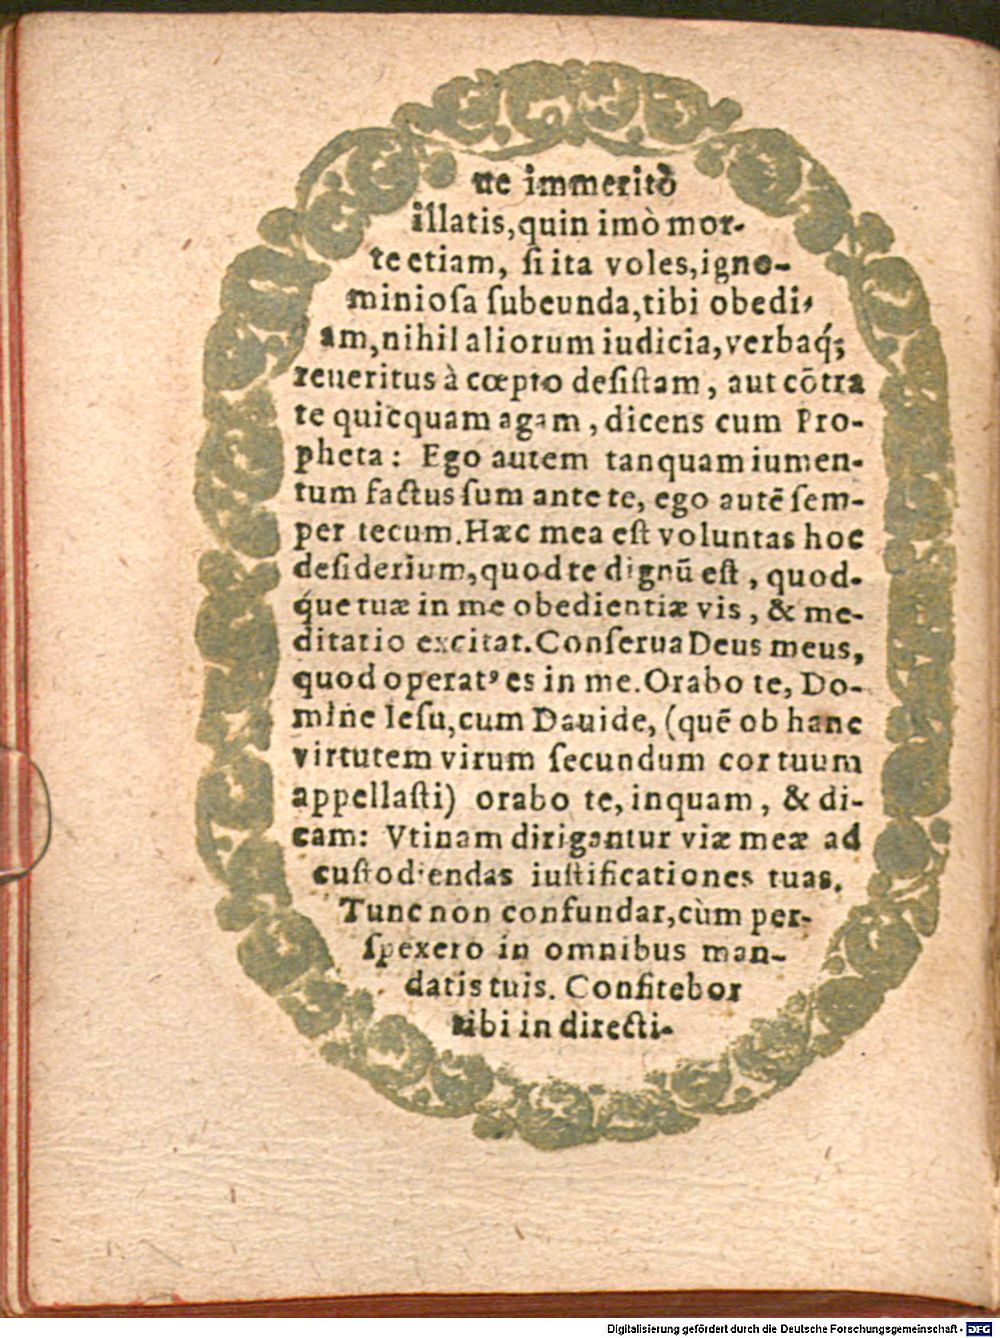 te immeritò
illatis,quin imò mor-
te etiam, ſi ita voles,igno-
minioſa ſubeunda,tibi obedi-
am,nihil aliorum iudicia,verbaq́;
reueritus à cœpto deſiſtam, aut cõtra
te quicquam agam, dicens cum Pro-
pheta: Ego autem tanquam iumen-
tum factus ſum ante te, ego autē ſem-
per tecum. Hæc mea eſt voluntas hoc
deſiderium,quod te dignū eſt, quod-
que tuæ in me obedientiæ vis, & me-
ditatio excitat. Conſerua Deus meus,
quod operatꝰ es in me. Orabo te, Do-
mine Ieſu, cum Dauide, (quē ob hanc
virtutem virum ſecundum cor tuum
appellaſti) orabo te, inquam, & di-
cam: Vtinam dirigantur viæ meæ ad
cuſtodiendas iuſtificationes tuas.
Tunc non confundar, cùm per-
ſpexero in omnibus man-
datis tuis. Confitebor
tibi in directi-
Digitalisierung gefördert durch die Deutsche Forschungsgemeinschaft - DFG